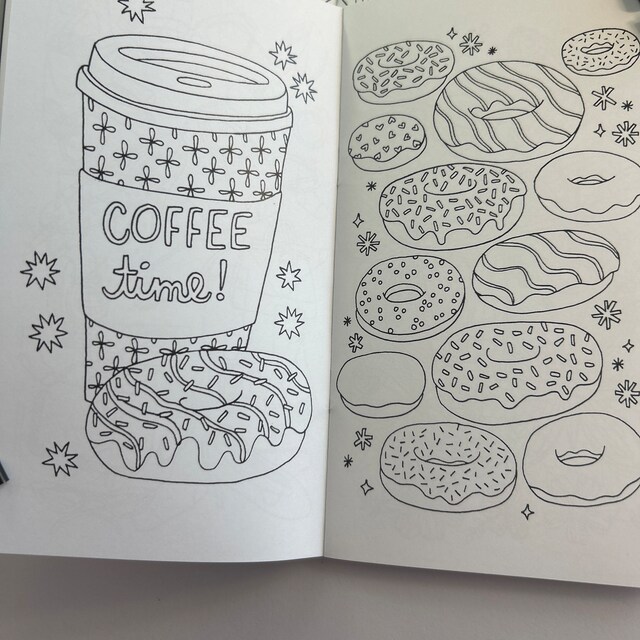 COFFEE
time!